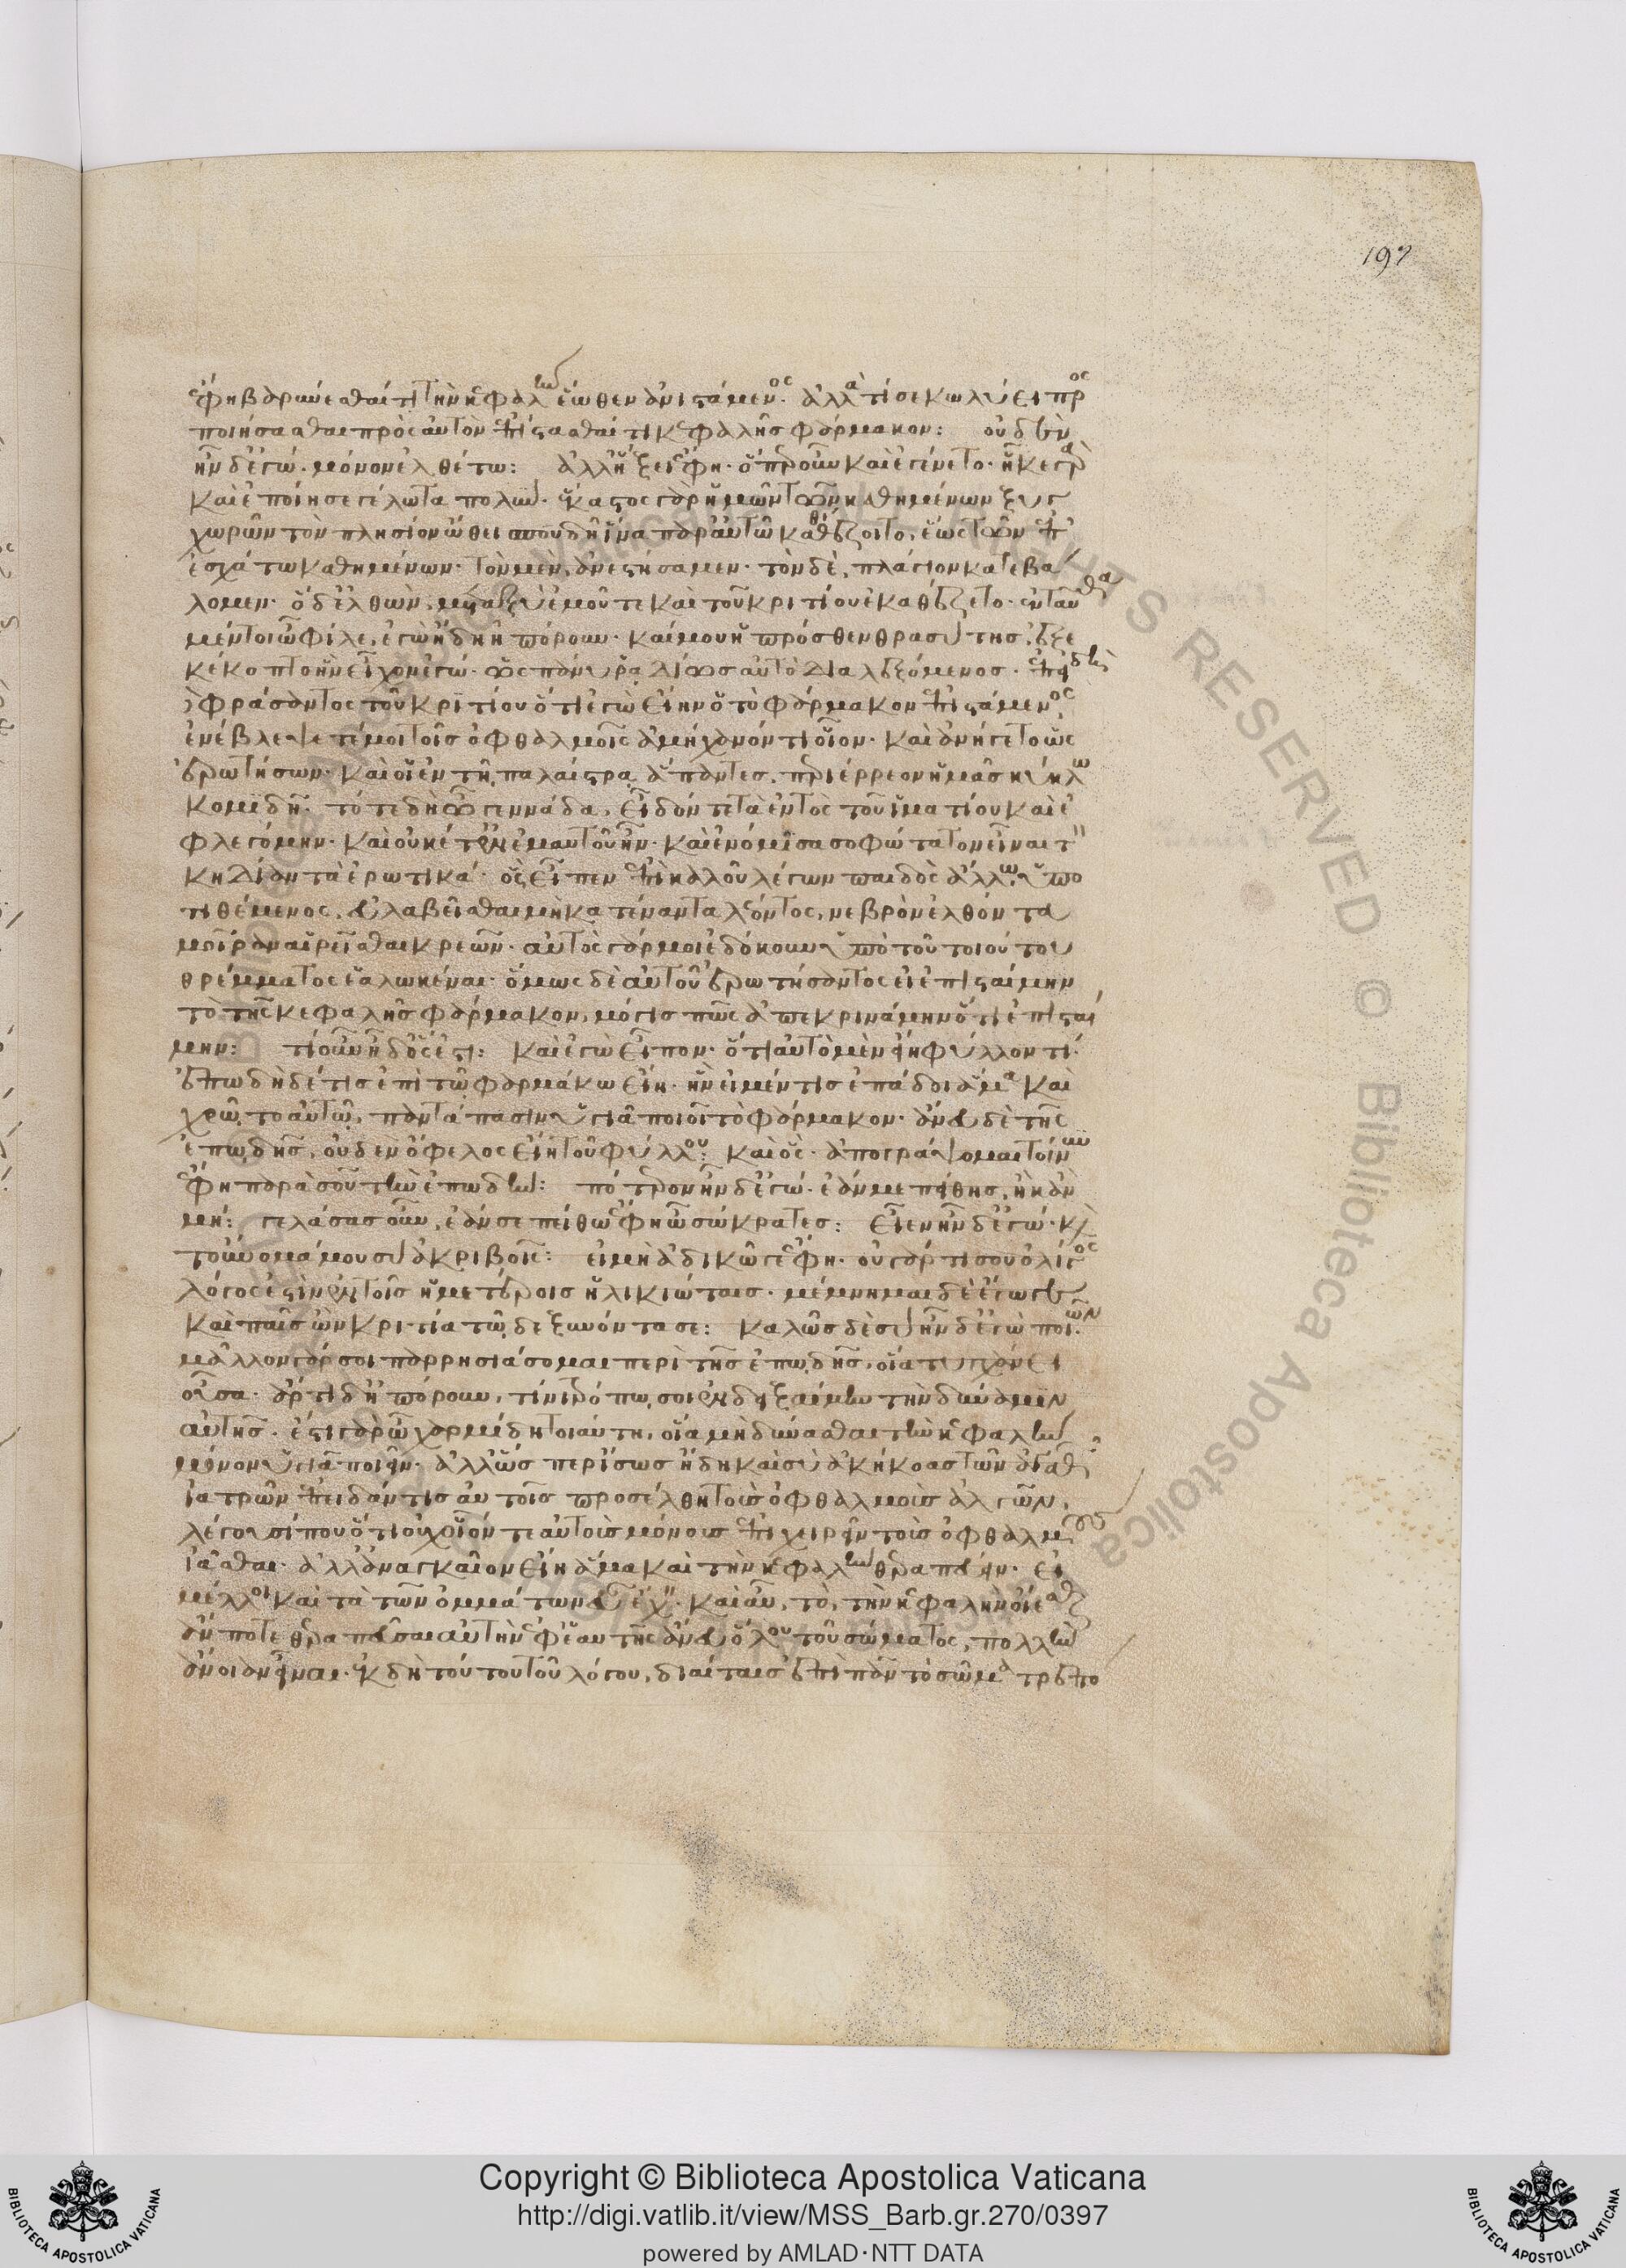 197
ἔφη βαρύνεσθαί τι τὴν κεφαλὴν ἕωθεν ἀνιστάμενος· ἀλλὰ τί σε κωλύει προσ
ποιήσασθαι πρὸς αὐτὸν ἐπίστασθαί τι κεφαλῆς φάρμακον: οὐδὲν
ἦν δ' ἐγώ· μόνον ἐλθέτω: ἀλλ' ἥξει ἔφη· ὅπερ οὖν καὶ ἐγένετο· ἧκε γὰρ
καὶ ἐποίησε γέλωτα πολύν· ἕκαστος γὰρ ἡμῶν τῶν καθημένων ξυγ
χωρῶν τὸν πλησίον ὤθει σπουδῆ ἵνα παρ' αὐτῶ καθέζοιτο, ἕως τῶν ἐπ'
ἐσχάτω καθημένων· τὸν μὲν, ἀνεστήσαμεν· τὸν δὲ, πλάγιον κατεβά
λομεν· ὁ δ' ἐλθὼν, μεταξὺ ἐμοῦ τε καὶ τοῦ κριτίου ἐκαθέζετο· ἐνταῦθα
μέντοι ὦ φίλε, ἐγὼ ἤδη ἠπόρουν· καί μου ἡ πρόσθεν θρασύτης, ἐξε
κέκοπτο ἣν εἶχον ἐγώ· ὡς πάνυ ῥᾳδίως αὐτῶ διαλεξόμενος· ἐπειδὴ
δὲ φράσαντος τοῦ κριτίου ὅτι ἐγὼ εἴην ὁ τὸ φάρμακον ἐπιστάμενος,
ἐνέβλεψέ τέ μοι τοῖς ὀφθαλμοῖς ἀμήχανόν τι οἷον· καὶ ἀνήγετο ὡς
ἐρωτήσων· καὶ οἱ ἐν τῇ παλαίστρᾳ ἅπαντες, περιέρρεον ἡμᾶς κύκλω
κομιδῆ· τότε δὴ ὦ γεννάδα, εἶδόν τε τὰ ἐντὸς τοῦ ἱματίου καὶ ἐ
φλεγόμην· καὶ οὐκέτ' ἐν ἐμαυτοῦ ἦν· καὶ ἐνόμισα σοφώτατον εἶναι τὸν
κηδίαν τὰ ἐρωτικά· ὃς εἶπεν ἐπὶ καλοῦ λέγων παιδὸς ἄλλῳ ὑπο
τιθέμενος, εὐλαβεῖσθαι μὴ κατέναντα λέοντος, νεβρὸν ἐλθόντα
μοῖραν αἱρεῖσθαι κρεῶν· αὐτὸς γάρ μοι ἐδόκουν ὑπὸ τοῦ τοιούτου
θρέμματος ἑαλωκέναι· ὅμως δὲ αὐτοῦ ἐρωτήσαντος εἰ ἐπισταίμην
τὸ τῆς κεφαλῆς φάρμακον, μόγις πως ἀπεκρινάμην ὅτι ἐπισταί
μην: τί οὖν ἦ δ' ὅς ἐστι: καὶ ἐγὼ εἶπον· ὅτι αὐτὸ μὲν εἴη φύλλον τι·
ἐπῳδὴ δέ τις ἐπὶ τῶ φαρμάκω εἴη· ἣν εἰ μέν τις ἐπάδοι ἅμα καὶ
χρῷτο αὐτῷ, παντάπασιν ὑγιᾶ ποιοῖ τὸ φάρμακον· ἄνευ δὲ τῆς
ἐπῳδῆς, οὐδὲν ὄφελος εἴη τοῦ φύλλου: καὶ ὅς· ἀπογράψομαι τοίνυν
ἔφη παρὰ σοῦ τὴν ἐπωδήν: πότερον ἦν δ' ἐγώ· ἐάν με πείθης, ἢ κἂν
μή: γελάσας οὖν, ἐάν σε πείθω ἔφη ὦ σώκρατες: εἶεν ἦν δ' ἐγώ· καὶ
τοὔνομά μου σὺ ἀκριβοῖς: εἰ μὴ ἀδικῶ γε ἔφη· οὐ γάρ τι σοῦ ὀλίγος
λόγος ἐστὶν ἐν τοῖς ἡμετέροις ἡλικιώταις· μέμνημαι δὲ ἔγωγε
καὶ παῖς ὢν κριτίᾳ τῷδε ξυνόντα σε: καλῶς δὲ σὺ ἦν δ' ἐγὼ ποιῶν·
μᾶλλον γάρ σοι παρρησιάσομαι περὶ τῆς ἐπῳδῆς, οἵα τυγχάνει
οὖσα· ἄρτι δ' ἠπόρουν, τίνι τρόπῳ σοι ἐνδειξαίμην τὴν δύναμιν
αὐτῆς· ἔστι γὰρ ὦ χαρμίδη τοιαύτη, οἵα μὴ δύνασθαι τὴν κεφαλὴν
μόνον ὑγιᾶ ποιεῖν· ἀλλ' ὥσπερ ἴσως ἤδη καὶ σὺ ἀκήκοας τῶν ἀγαθῶν
ἰατρῶν ἐπειδάν τις αὐτοῖς προσέλθη τοὺς ὀφθαλμοὺς ἀλγῶν,
λέγουσί που ὅτι οὐχ οἷόν τε αὐτοὺς μόνους ἐπιχειρεῖν τοὺς ὀφθαλμοὺς
ἰᾶσθαι· ἀλλ' ἀναγκαῖον εἴη ἅμα καὶ τὴν κεφαλὴν θεραπεύειν· εἰ
μέλλοι καὶ τὰ τῶν ὀμμάτων εὖ ἔχειν· καὶ αὖ, τὸ, τὴν κεφαλὴν οἴεσθαι
ἄν ποτε θεραπεῦσαι αὐτὴν ἐφ' ἑαυτῆς ἄνευ ὅλου τοῦ σώματος, πολλὴν
ἄνοιαν εἶναι· ἐκ δὴ τούτου τοῦ λόγου, διαίταις ἐπὶ πᾶν τὸ σῶμα τρεπό
Copyright © Biblioteca Apostolica Vaticana
http://digi.vatlib.it/view/MSS_Barb.gr.270/0397
powered by AMLAD·NTT DATA